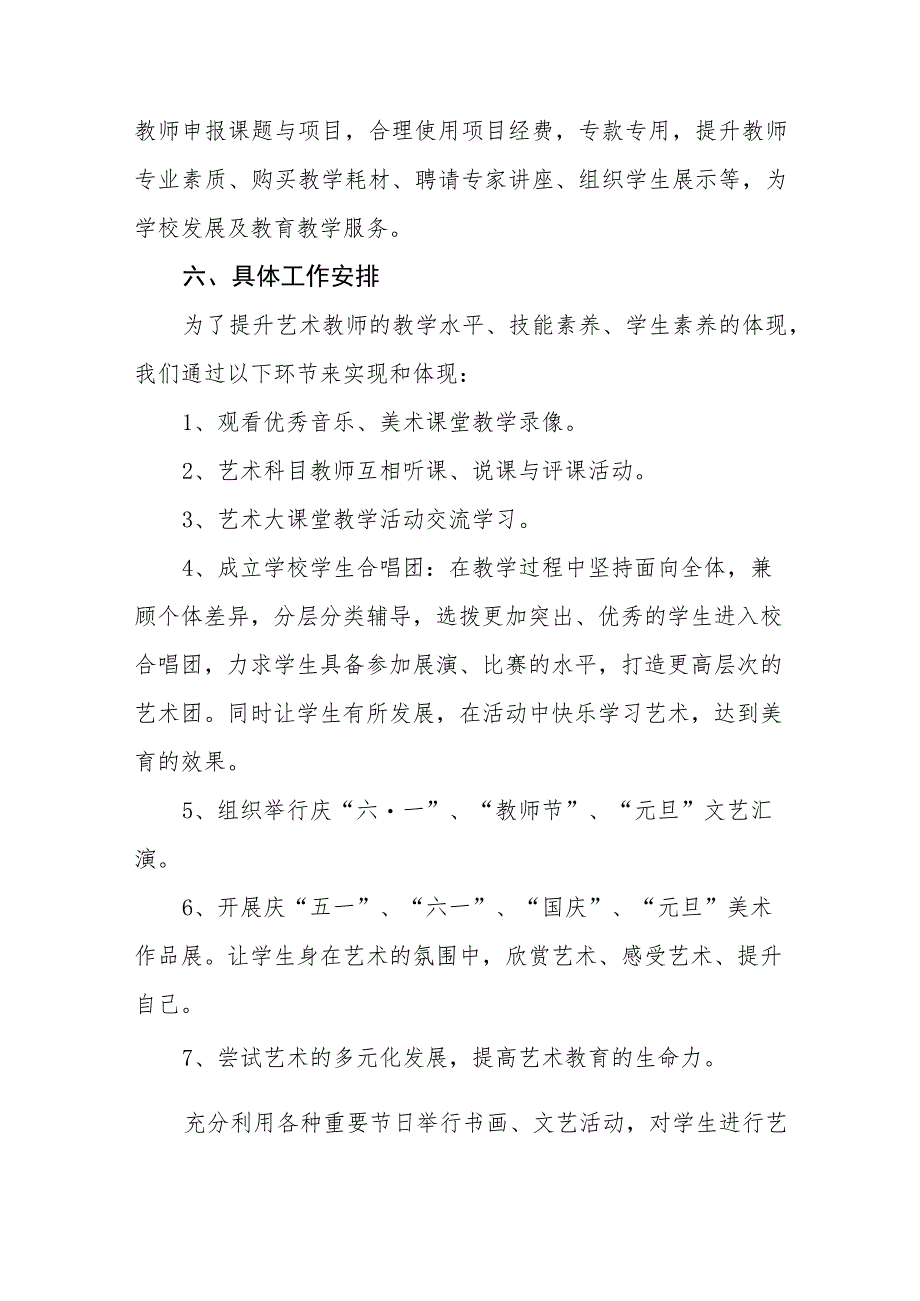 教师申报课题与项目，合理使用项目经费，专款专用，提升教师
专业素质、购买教学耗材、聘请专家讲座、组织学生展示等，为
学校发展及教育教学服务。
六、具体工作安排
为了提升艺术教师的教学水平、技能素养、学生素养的体现，
我们通过以下环节来实现和体现：
1、观看优秀音乐、美术课堂教学录像。
2、艺术科目教师互相听课、说课与评课活动。
3、艺术大课堂教学活动交流学习。
4、成立学校学生合唱团：在教学过程中坚持面向全体，兼
顾个体差异，分层分类辅导，选拨更加突出、优秀的学生进入校
合唱团，力求学生具备参加展演、比赛的水平，打造更高层次的
艺术团。同时让学生有所发展，在活动中快乐学习艺术，达到美
育的效果。
5、组织举行庆“六·一”、“教师节”、“元旦”文艺汇
演。
6、开展庆“五一”、“六一”、“国庆”、“元旦”美术
作品展。让学生身在艺术的氛围中，欣赏艺术、感受艺术、提升
自己。
7、尝试艺术的多元化发展，提高艺术教育的生命力。
充分利用各种重要节日举行书画、文艺活动，对学生进行艺